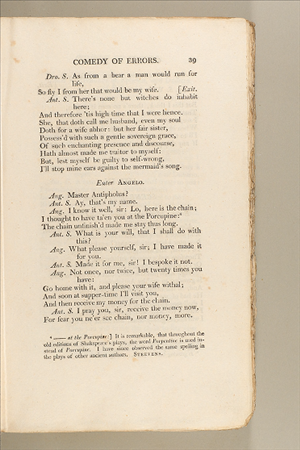 COMEDY OF ERRORS. 39
Dro. S. As from a bear a man would run for
life,
So fly I from her that would be my wife. [Exit.
Ant. S. There's none but witches do inhabit
here;
And therefore 'tis high time that I were hence.
She, that doth call me husband, even my soul
Doth for a wife abhor: but her fair sister,
Possess'd with such a gentle sovereign grace,
Of such enchanting presence and discourse,
Hath almost made me traitor to myself:
But, lest myself be guilty to self-wrong,
I'll stop mine ears against the mermaid's song.
Enter ANGELO.
Ang. Master Antipholus?
Ant. S. Ay, that's my name.
Ang. I know it well, sir; Lo, here is the chain;
I thought to have ta'en you at the Porcupine:⁴
The chain unfinish'd made me stay thus long.
Ant. S. What is your will, that I shall do with
this?
Ang. What please yourself, sir; I have made it
for you.
Ant. S. Made it for me, sir! I bespoke it not.
Ang. Not once, nor twice, but twenty times you
have:
Go home with it, and please your wife withal;
And soon at supper-time I'll visit you,
And then receive my money for the chain.
Ant. S. I pray you, sir, receive the money now,
For fear you ne'er see chain, nor money, more.
⁴ —— at the Porcupine:] It is remarkable, that throughout the
old editions of Shakspeare's plays, the word Porpentine is used in-
stead of Porcupine. I have since observed the same spelling in
the plays of other ancient authors. STEEVENS.